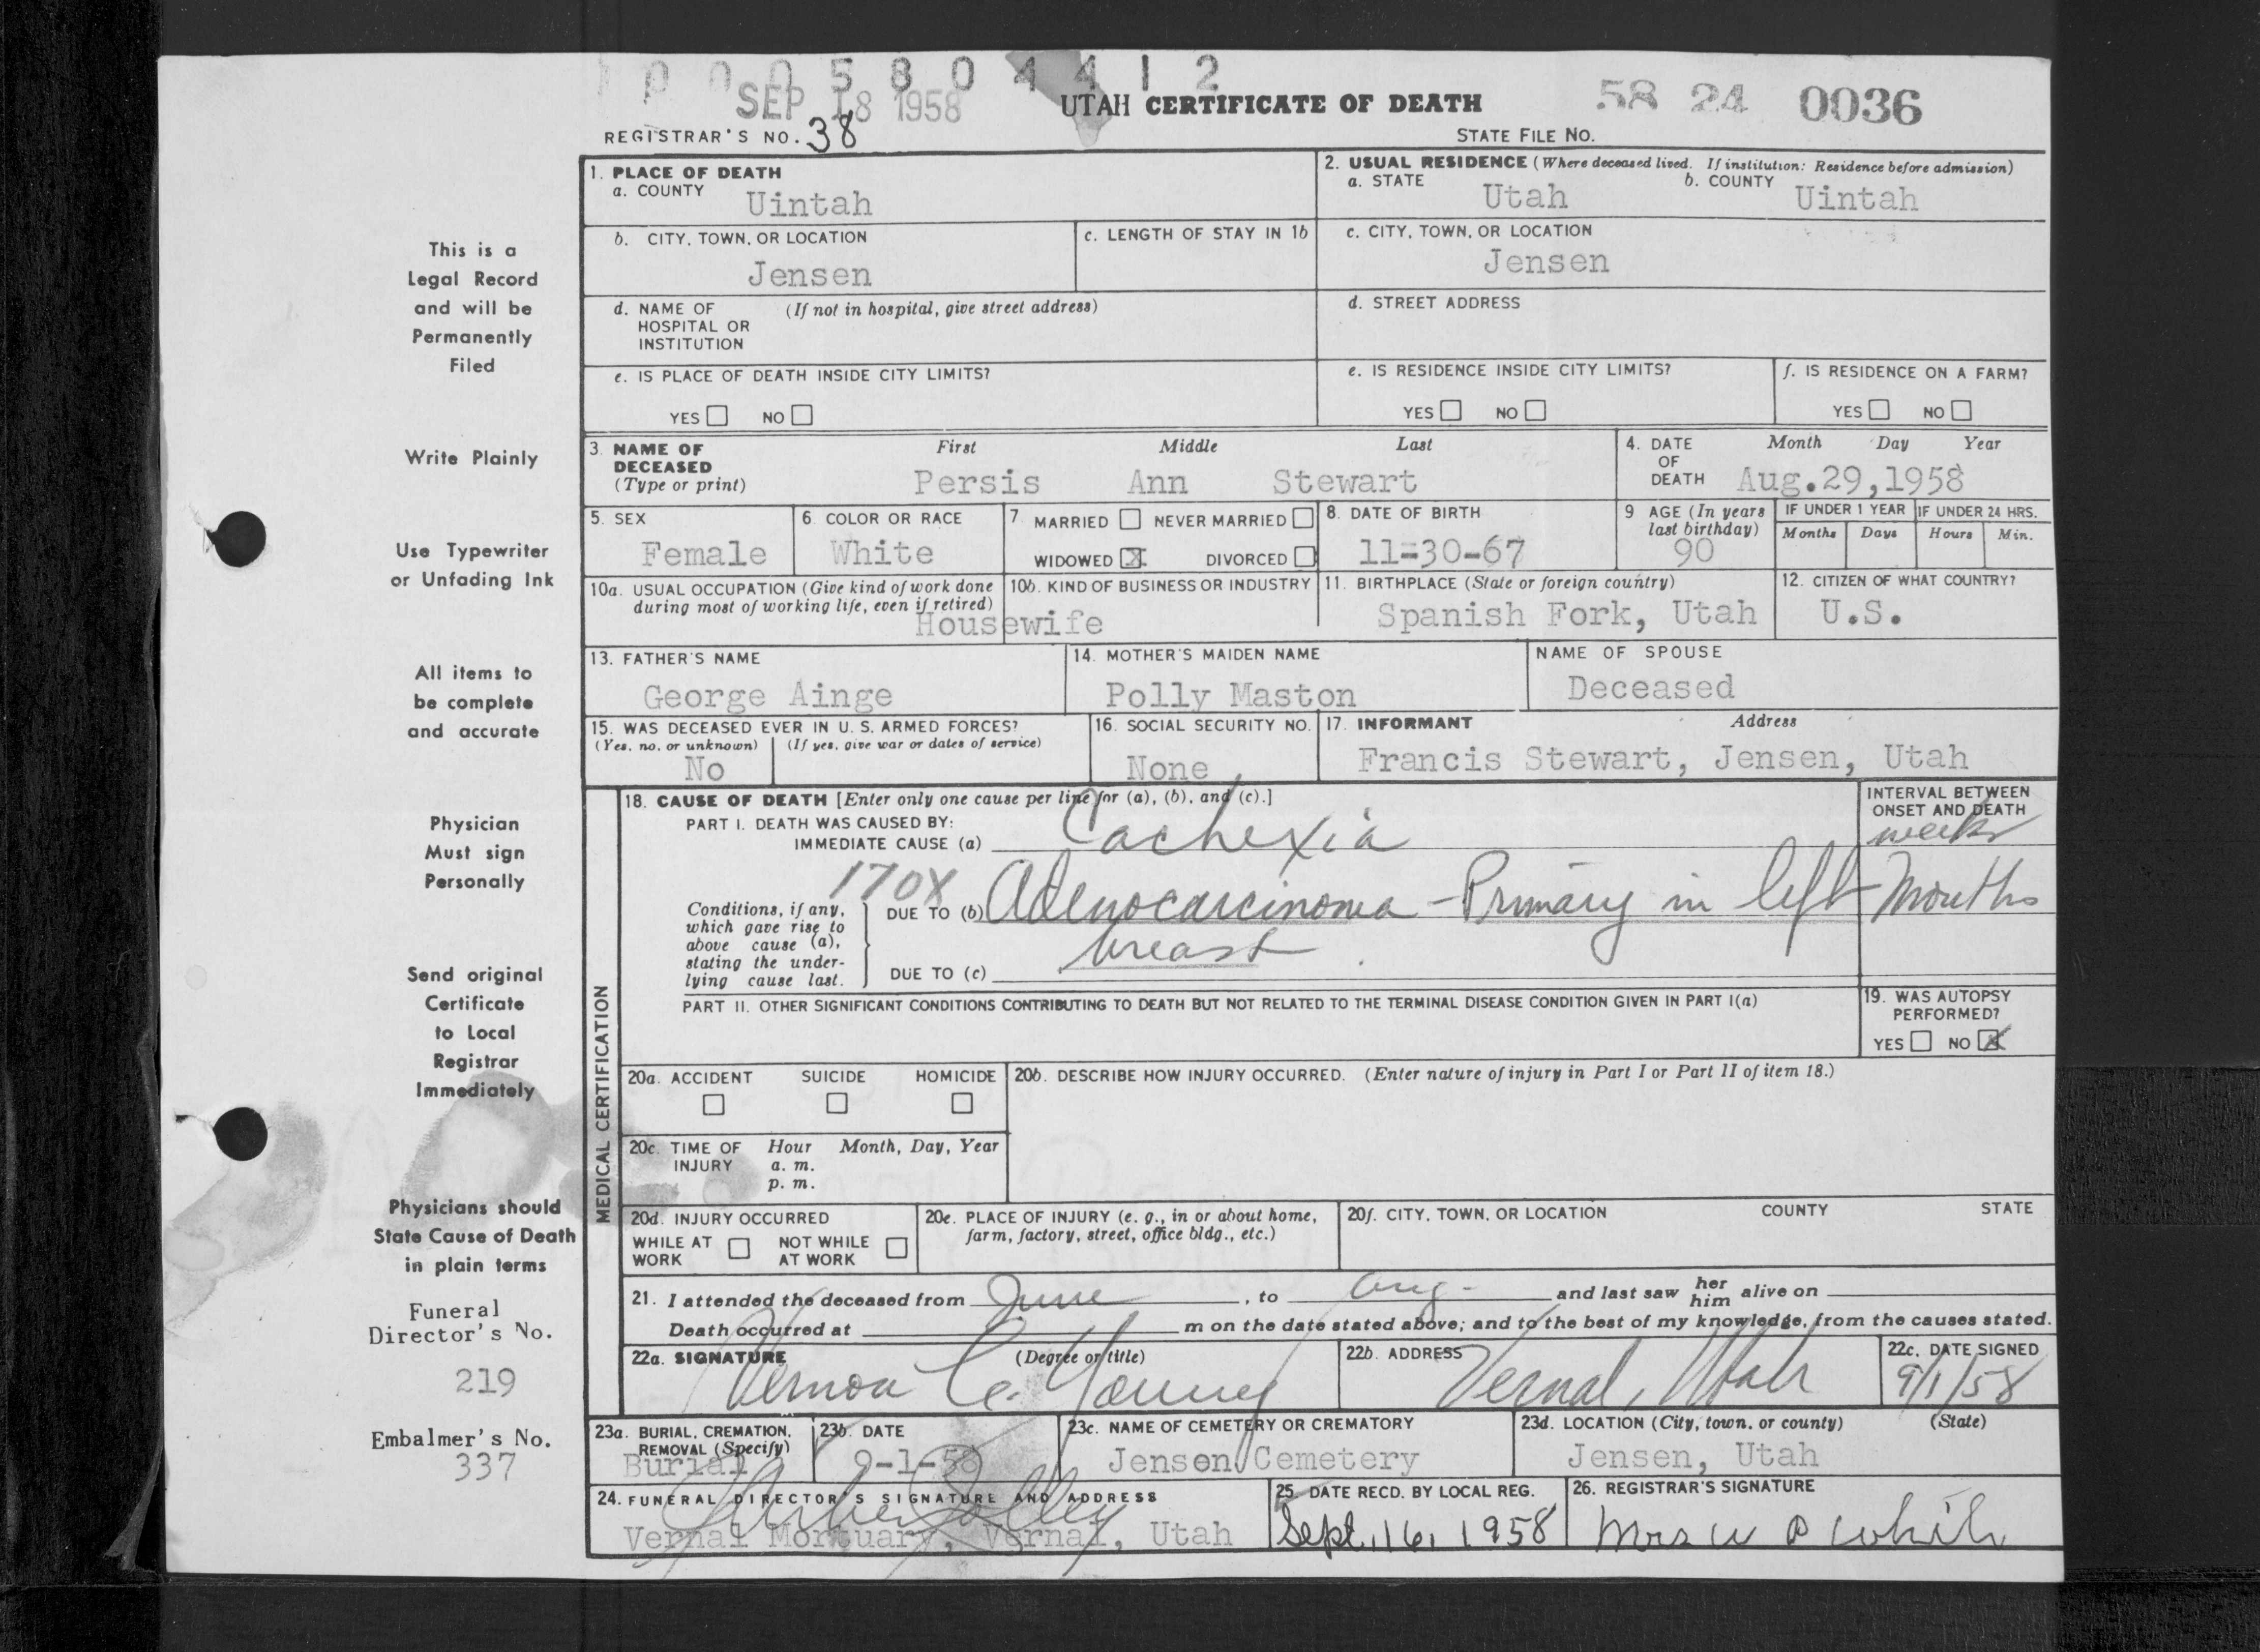 0 0 0 5 8 0 4 4 1 2
SEP 18 1958
UTAH CERTIFICATE OF DEATH
58 24 0036
REGISTRAR'S NO. 38
STATE FILE NO.
This is a
Legal Record
and will be
Permanently
Filed
Write Plainly
Use Typewriter
or Unfading Ink
All items to
be complete
and accurate
Physician
Must sign
Personally
Send original
Certificate
to Local
Registrar
Immediately
Physicians should
State Cause of Death
in plain terms
Funeral
Director's No.
219
Embalmer's No.
337
1. PLACE OF DEATH
a. COUNTY
Uintah
2. USUAL RESIDENCE (Where deceased lived. If institution: Residence before admission)
a. STATE
Utah
b. COUNTY
Uintah
b. CITY, TOWN, OR LOCATION
Jensen
c. LENGTH OF STAY IN 1b
c. CITY, TOWN, OR LOCATION
Jensen
d. NAME OF (If not in hospital, give street address)
HOSPITAL OR
INSTITUTION
d. STREET ADDRESS
e. IS PLACE OF DEATH INSIDE CITY LIMITS?
YES NO
e. IS RESIDENCE INSIDE CITY LIMITS?
YES NO
f. IS RESIDENCE ON A FARM?
YES NO
3. NAME OF
DECEASED
(Type or print)
First Middle Last
Persis Ann Stewart
4. DATE
OF
DEATH
Month Day Year
Aug.29,1958
5. SEX
Female
6. COLOR OR RACE
White
7. MARRIED NEVER MARRIED
WIDOWED X DIVORCED
8. DATE OF BIRTH
11-30-67
9 AGE (In years
last birthday)
90
IF UNDER 1 YEAR
Months Days
IF UNDER 24 HRS.
Hours Min.
10a. USUAL OCCUPATION (Give kind of work done
during most of working life, even if retired)
10b. KIND OF BUSINESS OR INDUSTRY
Housewife
11. BIRTHPLACE (State or foreign country)
Spanish Fork, Utah
12. CITIZEN OF WHAT COUNTRY?
U.S.
13. FATHER'S NAME
George Ainge
14. MOTHER'S MAIDEN NAME
Polly Maston
NAME OF SPOUSE
Deceased
15. WAS DECEASED EVER IN U. S. ARMED FORCES?
(Yes, no, or unknown) (If yes, give war or dates of service)
No
16. SOCIAL SECURITY NO.
None
17. INFORMANT Address
Francis Stewart, Jensen, Utah
MEDICAL CERTIFICATION
18. CAUSE OF DEATH [Enter only one cause per line for (a), (b), and (c).]
PART I. DEATH WAS CAUSED BY:
IMMEDIATE CAUSE (a) Cachexia
INTERVAL BETWEEN
ONSET AND DEATH
weeks
170X
Conditions, if any,
which gave rise to
above cause (a),
stating the under-
lying cause last.
DUE TO (b) Adenocarcinoma - Primary in left
breast
Months
DUE TO (c)
PART II. OTHER SIGNIFICANT CONDITIONS CONTRIBUTING TO DEATH BUT NOT RELATED TO THE TERMINAL DISEASE CONDITION GIVEN IN PART I(a)
19. WAS AUTOPSY
PERFORMED?
YES NO X
20a. ACCIDENT SUICIDE HOMICIDE
20b. DESCRIBE HOW INJURY OCCURRED. (Enter nature of injury in Part I or Part II of item 18.)
20c. TIME OF Hour Month, Day, Year
INJURY a. m.
p. m.
20d. INJURY OCCURRED
WHILE AT NOT WHILE
WORK AT WORK
20e. PLACE OF INJURY (e. g., in or about home,
farm, factory, street, office bldg., etc.)
20f. CITY, TOWN, OR LOCATION COUNTY STATE
21. I attended the deceased from June, to Aug- and last saw her him alive on
Death occurred at m on the date stated above; and to the best of my knowledge, from the causes stated.
22a. SIGNATURE (Degree or title)
Vernon C. Young
22b. ADDRESS
Vernal, Utah
22c. DATE SIGNED
9/1/58
23a. BURIAL, CREMATION,
REMOVAL (Specify)
Burial
23b. DATE
9-1-58
23c. NAME OF CEMETERY OR CREMATORY
Jensen Cemetery
23d. LOCATION (City, town, or county) (State)
Jensen, Utah
24. FUNERAL DIRECTOR'S SIGNATURE AND ADDRESS
Vernal Mortuary, Vernal, Utah
25. DATE RECD. BY LOCAL REG.
Sept. 16, 1958
26. REGISTRAR'S SIGNATURE
Mrs W P White